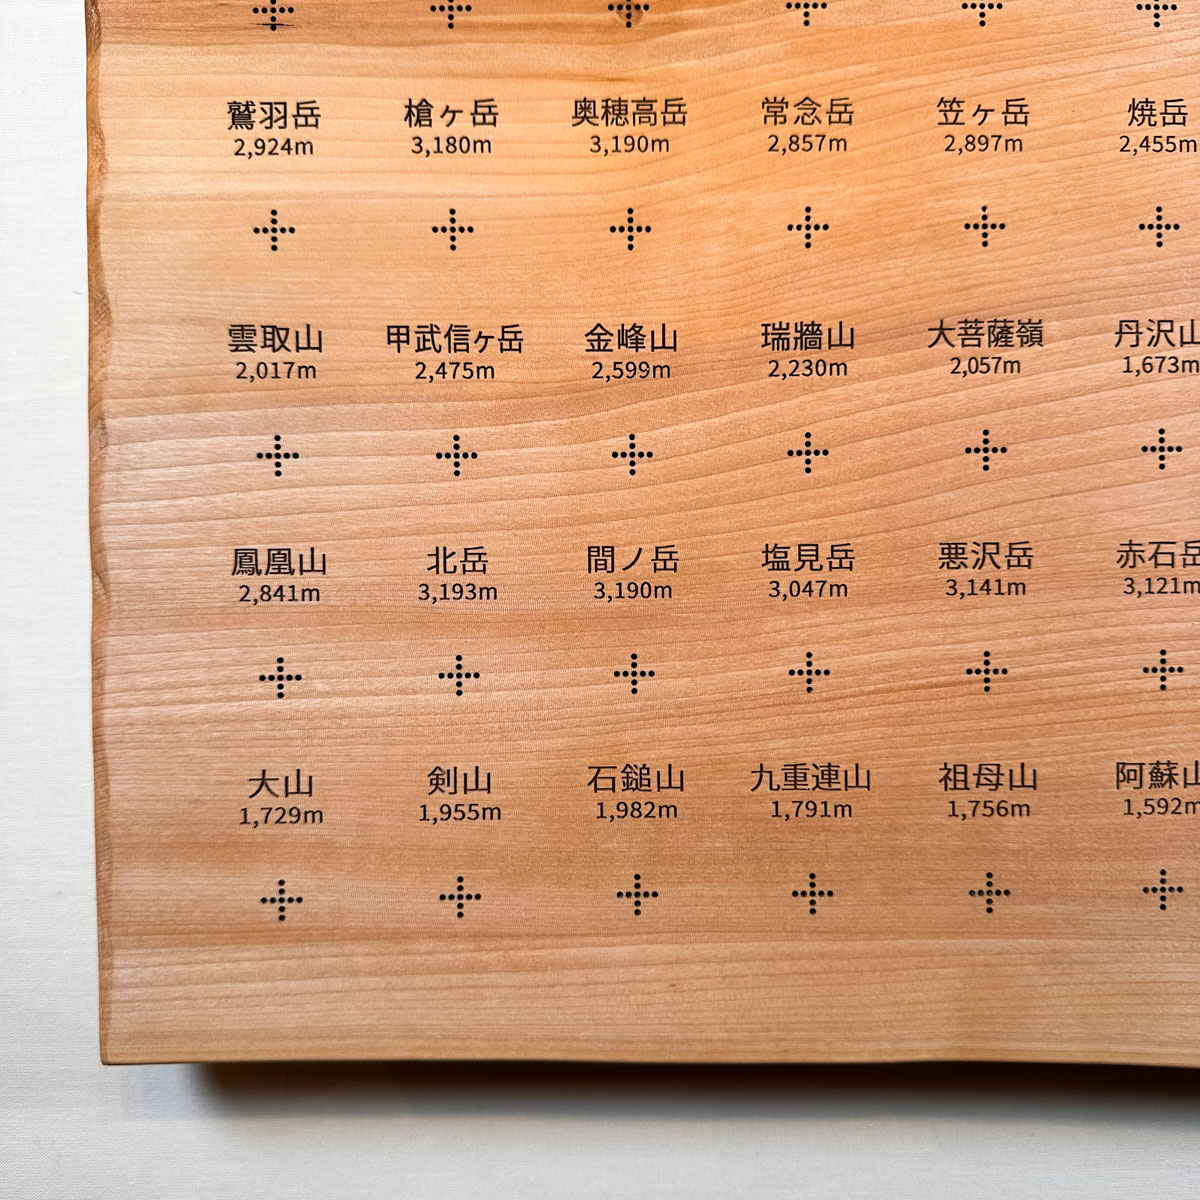 鷲羽岳 槍ヶ岳 奥穂高岳 常念岳 笠ヶ岳 焼岳
2,924m 3,180m 3,190m 2,857m 2,897m 2,455m
雲取山 甲武信ヶ岳 金峰山 瑞牆山 大菩薩嶺 丹沢山
2,017m 2,475m 2,599m 2,230m 2,057m 1,673m
鳳凰山 北岳 間ノ岳 塩見岳 悪沢岳 赤石岳
2,841m 3,193m 3,190m 3,047m 3,141m 3,121m
大山 剣山 石鎚山 九重連山 祖母山 阿蘇山
1,729m 1,955m 1,982m 1,791m 1,756m 1,592m